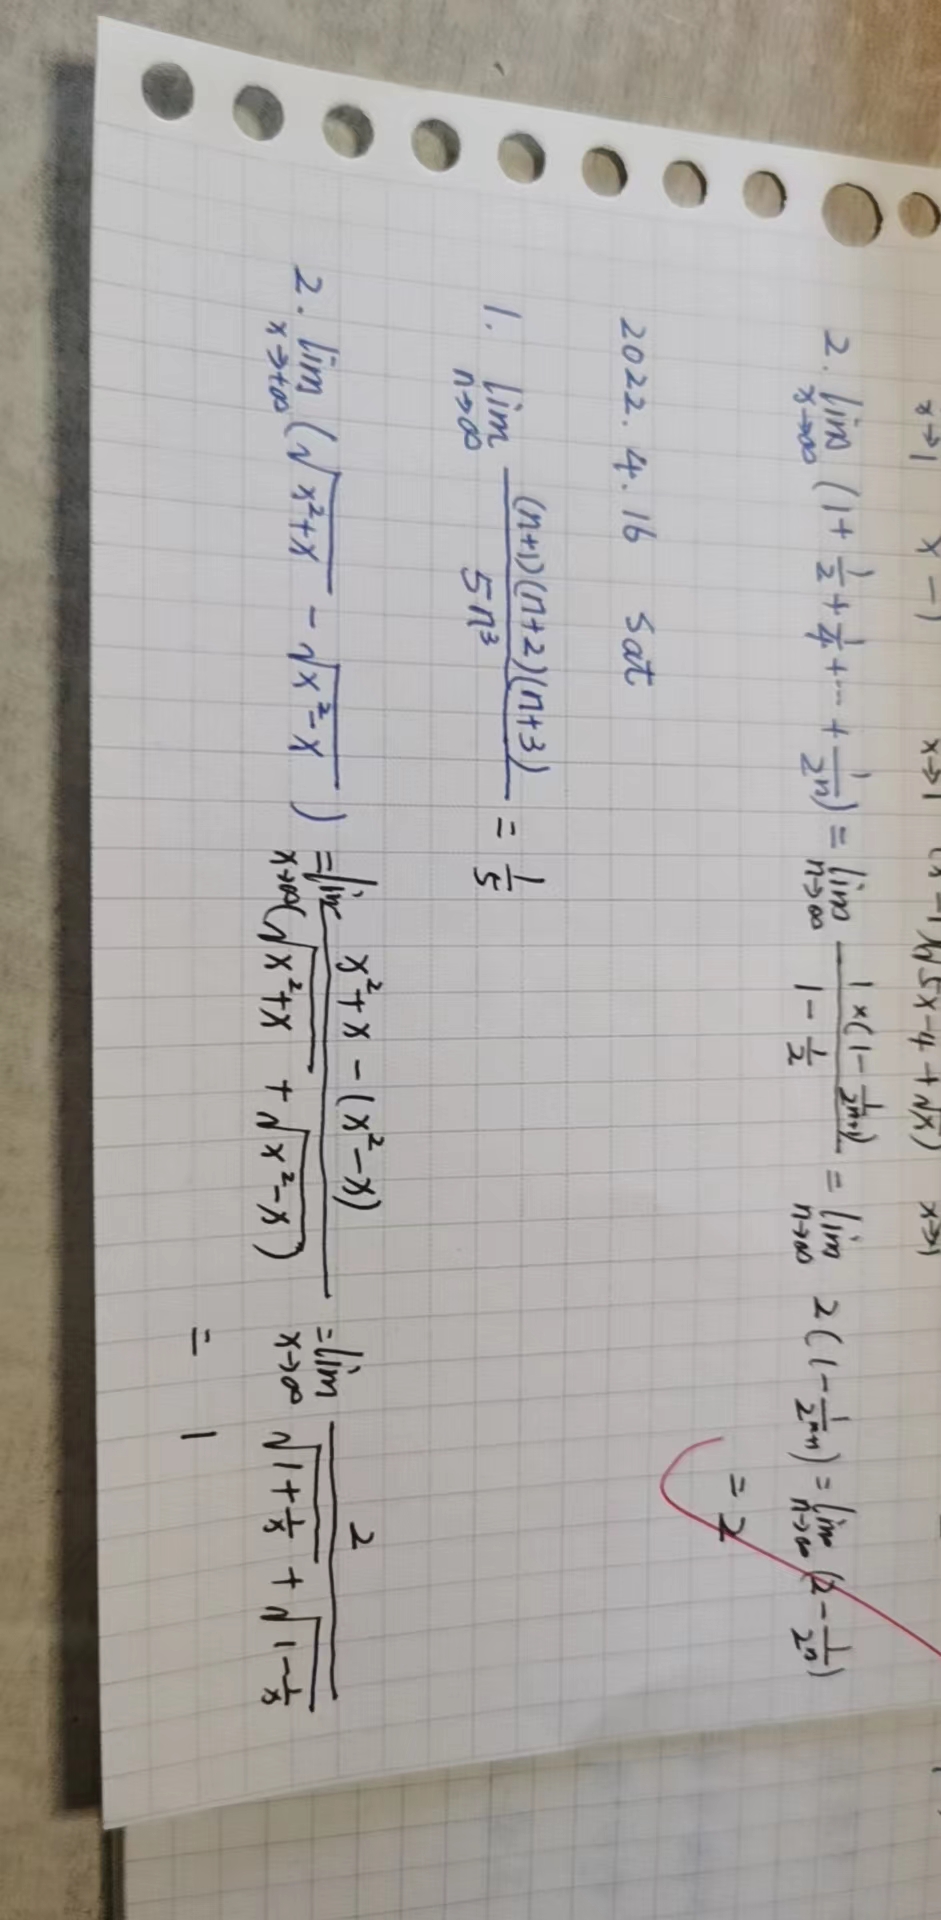 x→1 x - 1 x→1 (x-1)(√5x-4 + √x) x→1
2. lim x→∞ (1 + 1/2 + 1/4 + ··· + 1/2ⁿ) = lim n→∞ 1×(1 - 1/2ⁿ⁺¹) / 1 - 1/2 = lim n→∞ 2(1 - 1/2ⁿ⁺¹) = lim n→∞ (2 - 1/2ⁿ)
= 2
2022. 4. 16 Sat
1. lim n→∞ (n+1)(n+2)(n+3) / 5n³ = 1/5
2. lim x→+∞ (√x²+x - √x²-x) = lim x→∞ x²+x-(x²-x) / (√x²+x + √x²-x) = lim x→∞ 2 / √1+1/x + √1-1/x
= 1